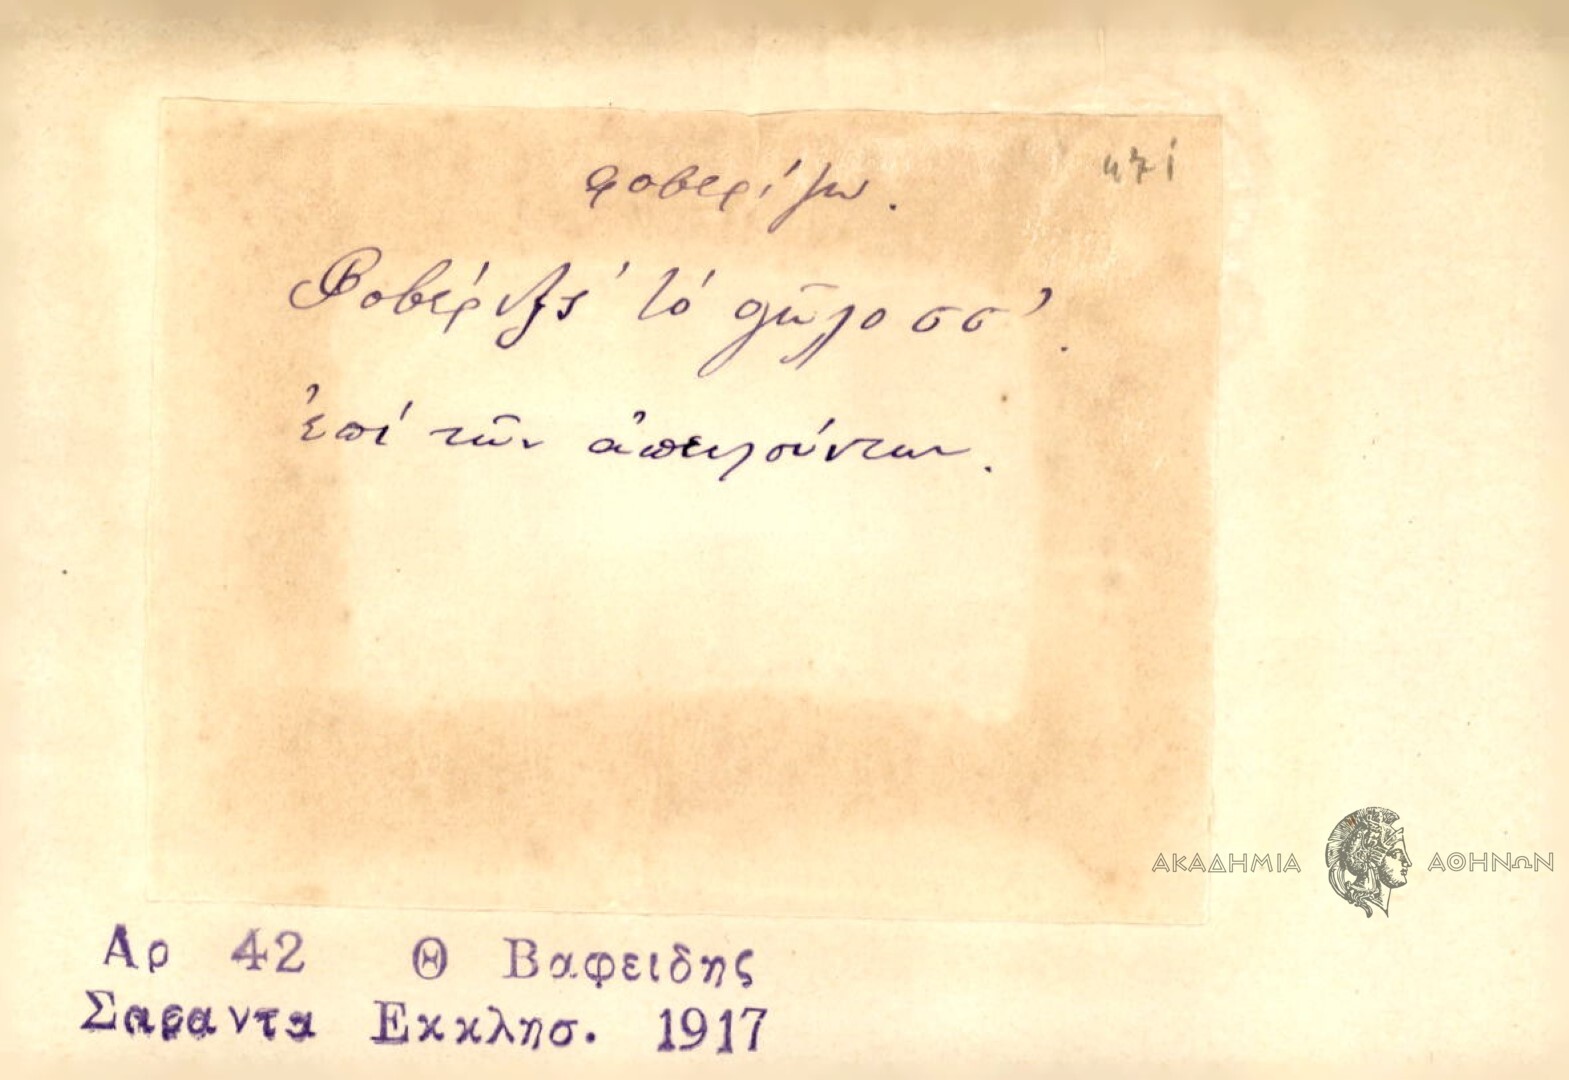 φοβερίζω.
471
Φοβέριζε τό gῶλο σσ'.
ἐπί τῶν ἀπειλούντων.
ΑΚΑΔΗΜΙΑ ΑΘΗΝΩΝ
Αρ 42 Θ Βαφειδης
Σαραντα Εκκλησ. 1917